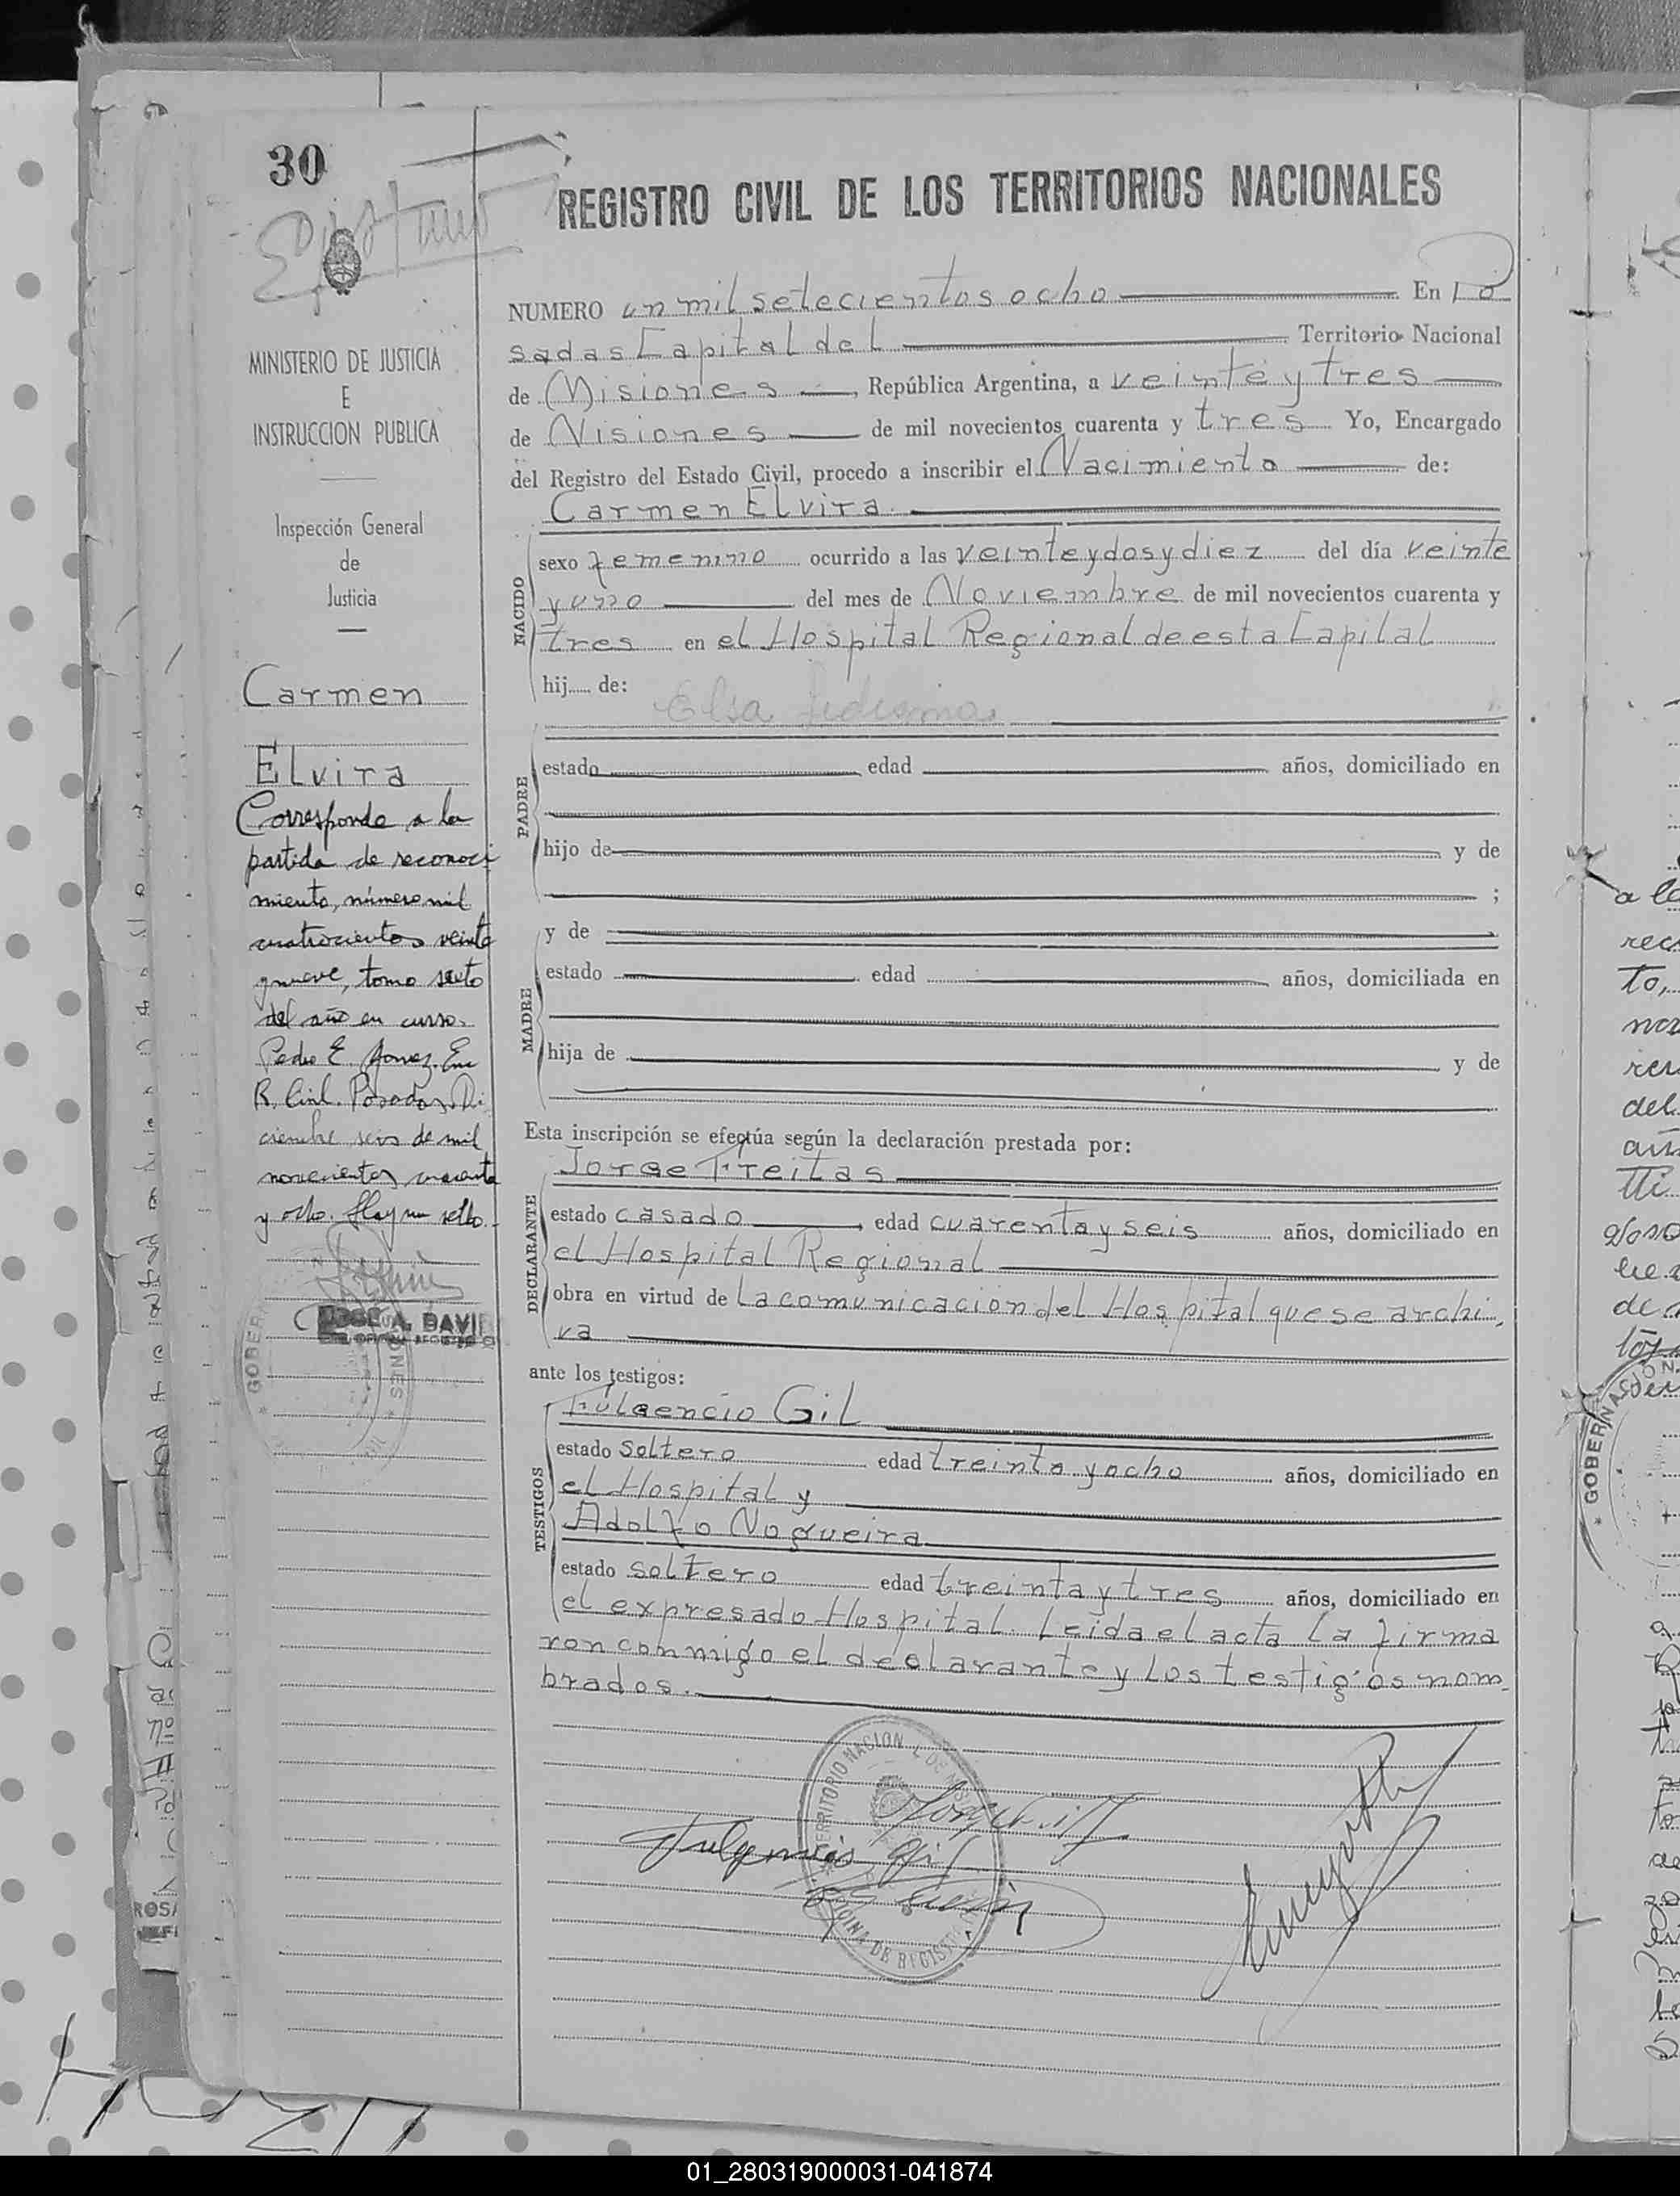 30
REGISTRO CIVIL DE LOS TERRITORIOS NACIONALES
NUMERO un mil setecientos ocho En Po
sadas Capital del Territorio Nacional
de Misiones, República Argentina, a veinte y tres
de Misiones de mil novecientos cuarenta y tres Yo, Encargado
del Registro del Estado Civil, procedo a inscribir el Nacimiento de:
Carmen Elvira
NACIDO
sexo femenino ocurrido a las veinte y dos y diez del día veinte
y uno del mes de Noviembre de mil novecientos cuarenta y
tres en el Hospital Regional de esta Capital
hij...... de:
Elsa Ledesma
PADRE
estado edad años, domiciliado en
hijo de y de
;
MADRE
y de
estado edad años, domiciliada en
hija de y de
Esta inscripción se efectúa según la declaración prestada por:
DECLARANTE
Jorge Freitas
estado casado, edad cuarenta y seis años, domiciliado en
el Hospital Regional
obra en virtud de la comunicacion del Hospital que se archi
va
ante los testigos:
TESTIGOS
Fulgencio Gil
estado soltero edad treinta y ocho años, domiciliado en
el Hospital y
Adolfo Nogueira
estado soltero edad treinta y tres años, domiciliado en
el expresado Hospital. Leida el acta la firma
ron conmigo el declarante y los testigos nom
brados.
Fulgencio Gil
MINISTERIO DE JUSTICIA
E
INSTRUCCION PUBLICA
Inspección General
de
Justicia
Carmen
Elvira
Corresponde a la
partida de reconoci
miento, número mil
cuatrocientos veinte
y nueve, tomo sexto
del año en curso.
Pedro E. Gomez. Enc
R. Civil. Posadas. Di
ciembre seis de mil
novecientos cuarenta
y ocho. Hay un sello.
JOSE A. DAVI
GOBER
01_280319000031-041874